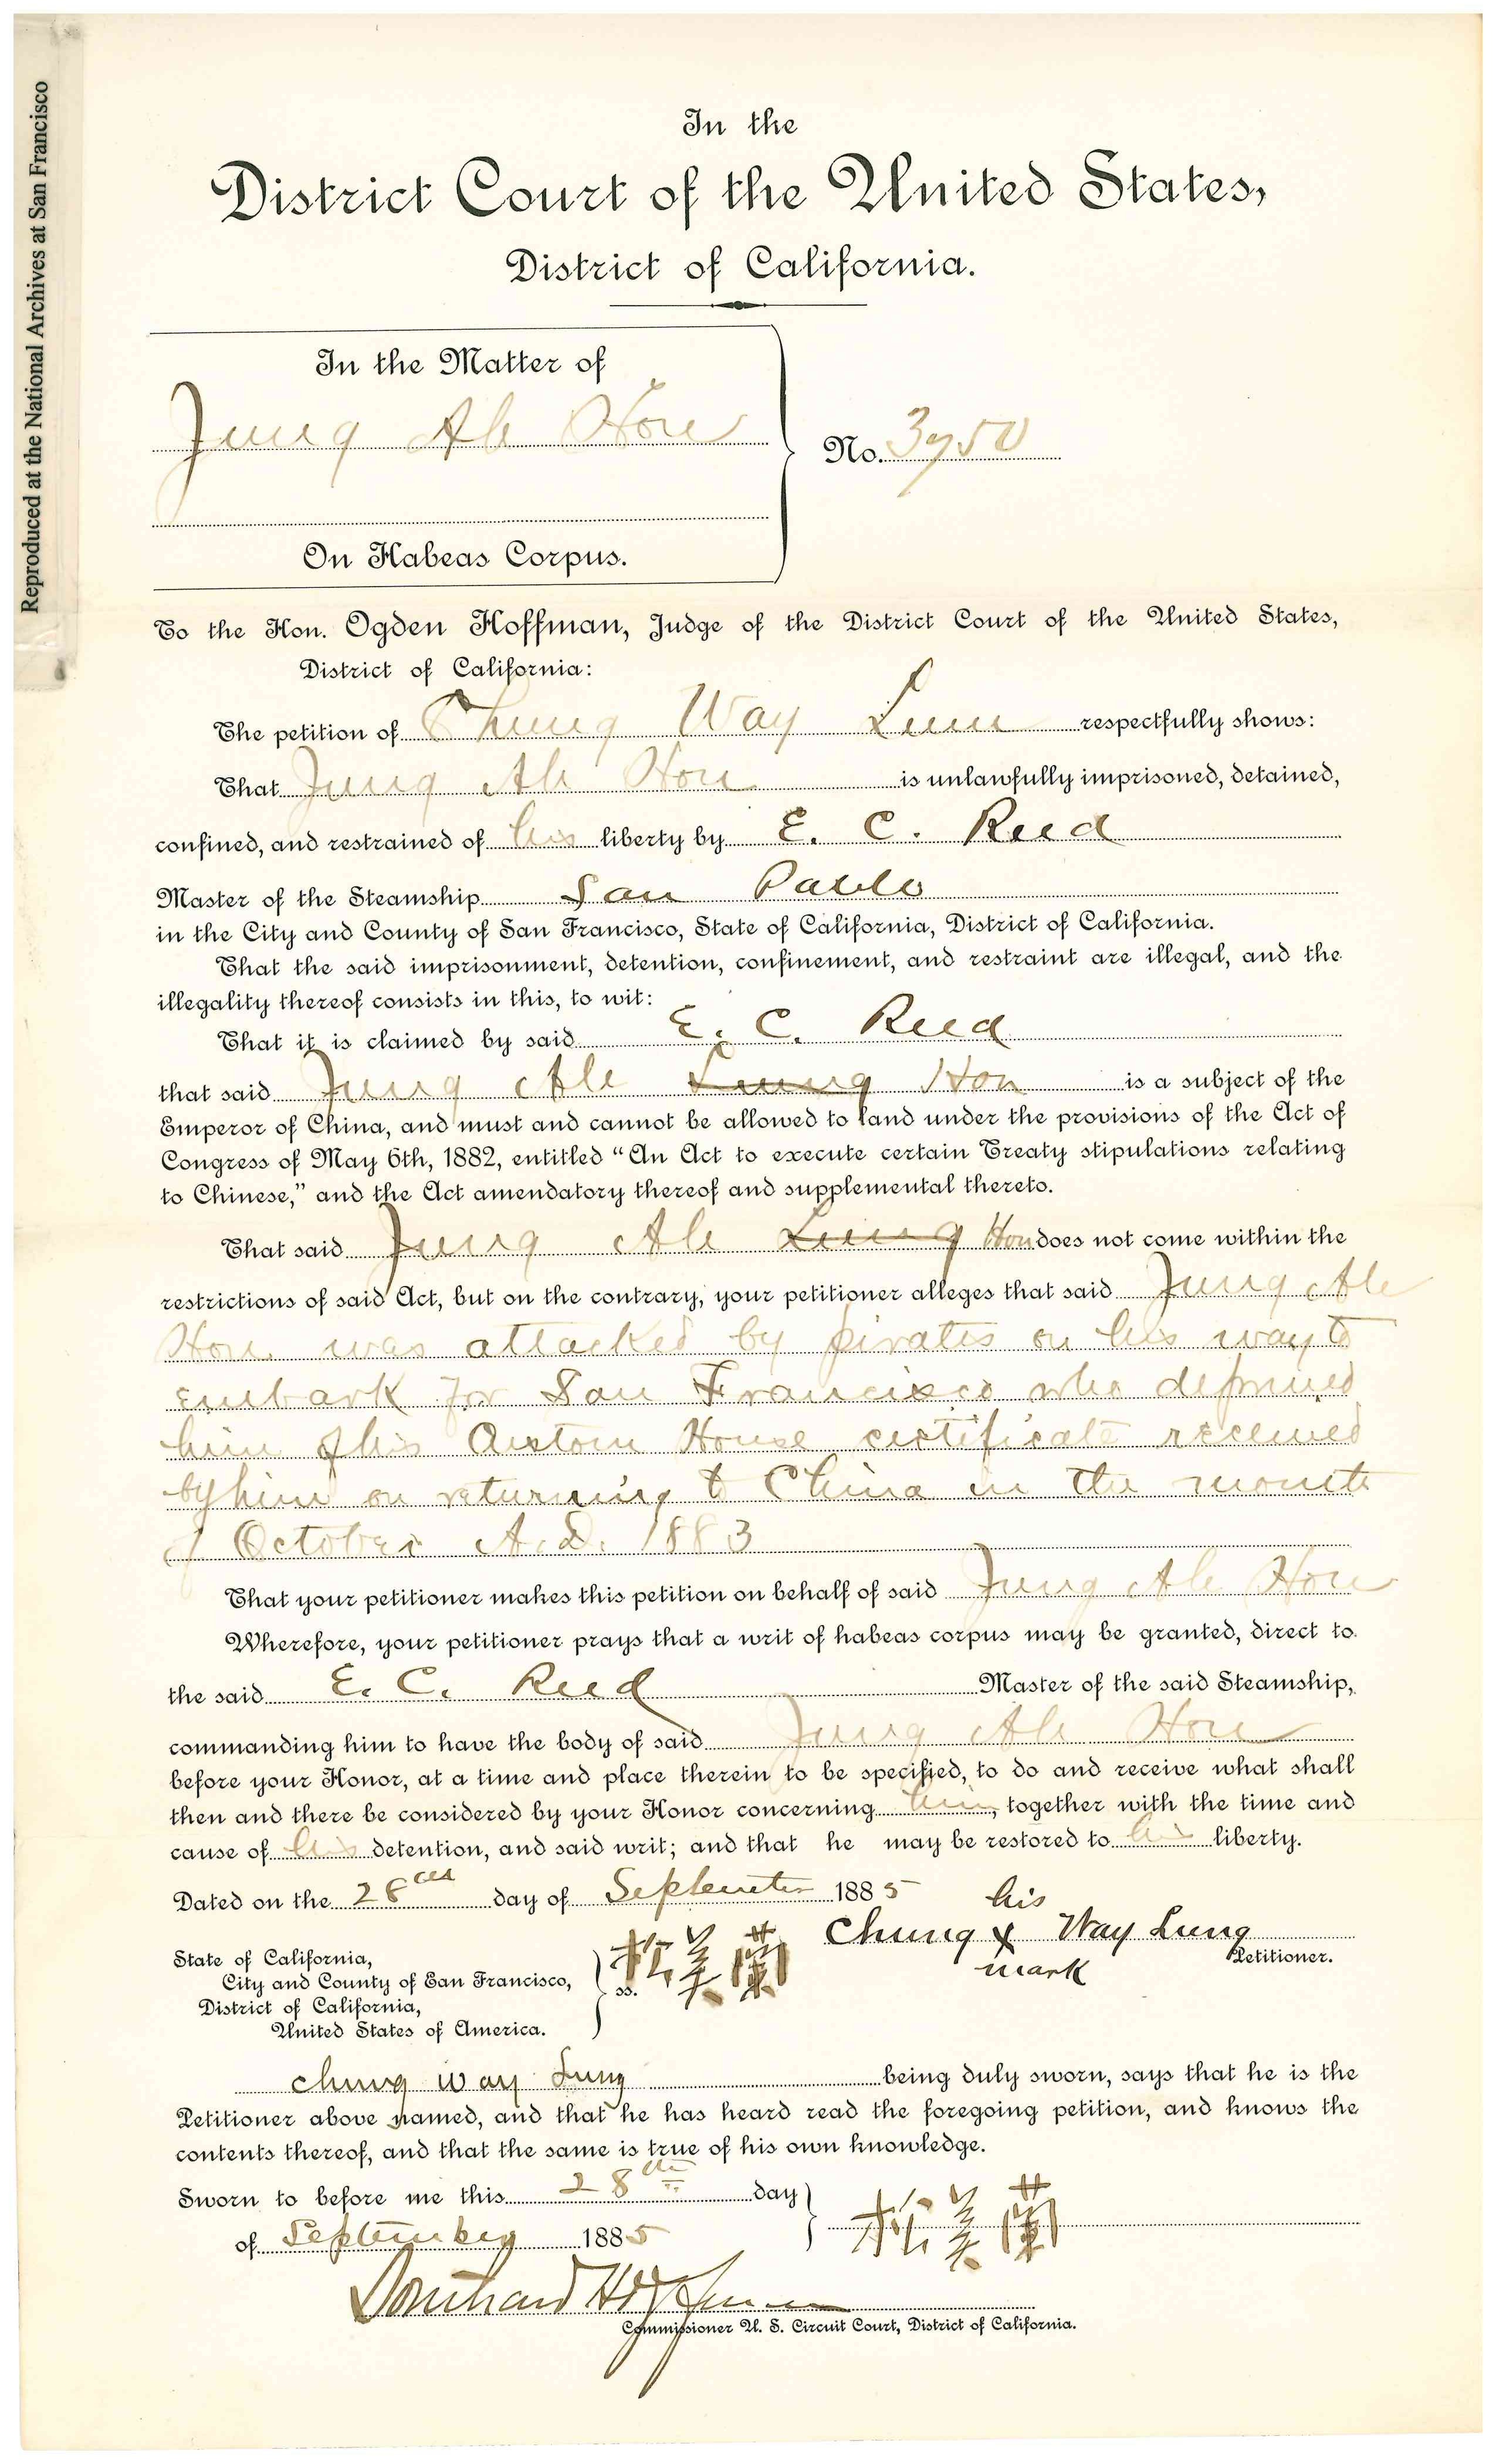 Reproduced at the National Archives at San Francisco
In the
District Court of the United States,
District of California.
In the Matter of
Jung Ah Hon
No. 3950
On Habeas Corpus.
To the Hon. Ogden Hoffman, Judge of the District Court of the United States,
District of California:
The petition of Chung Way Lun respectfully shows:
That Jung Ah Hon is unlawfully imprisoned, detained,
confined, and restrained of his liberty by E. C. Reed
Master of the Steamship San Pablo
in the City and County of San Francisco, State of California, District of California.
That the said imprisonment, detention, confinement, and restraint are illegal, and the
illegality thereof consists in this, to wit:
That it is claimed by said E. C. Reed
that said Jung Ah Lung Hon is a subject of the
Emperor of China, and must and cannot be allowed to land under the provisions of the Act of
Congress of May 6th, 1882, entitled "An Act to execute certain Treaty stipulations relating
to Chinese," and the Act amendatory thereof and supplemental thereto.
That said Jung Ah Lung Hon does not come within the
restrictions of said Act, but on the contrary, your petitioner alleges that said Jung Ah
Hon was attacked by pirates on his way to
embark for San Francisco who deprived
him of his Custom House certificate received
by him on returning to China in the month
of October A.D. 1883
That your petitioner makes this petition on behalf of said Jung Ah Hon
Wherefore, your petitioner prays that a writ of habeas corpus may be granted, direct to
the said E. C. Reed Master of the said Steamship,
commanding him to have the body of said Jung Ah Hon
before your Honor, at a time and place therein to be specified, to do and receive what shall
then and there be considered by your Honor concerning him, together with the time and
cause of his detention, and said writ; and that he may be restored to his liberty.
Dated on the 28th day of September 1885
his
Chung x Way Lung
Petitioner.
mark
State of California,
City and County of San Francisco,
District of California,
United States of America.
ss.
chung way Lung being duly sworn, says that he is the
Petitioner above named, and that he has heard read the foregoing petition, and knows the
contents thereof, and that the same is true of his own knowledge.
Sworn to before me this 28th day
of September 1885
Commissioner U. S. Circuit Court, District of California.